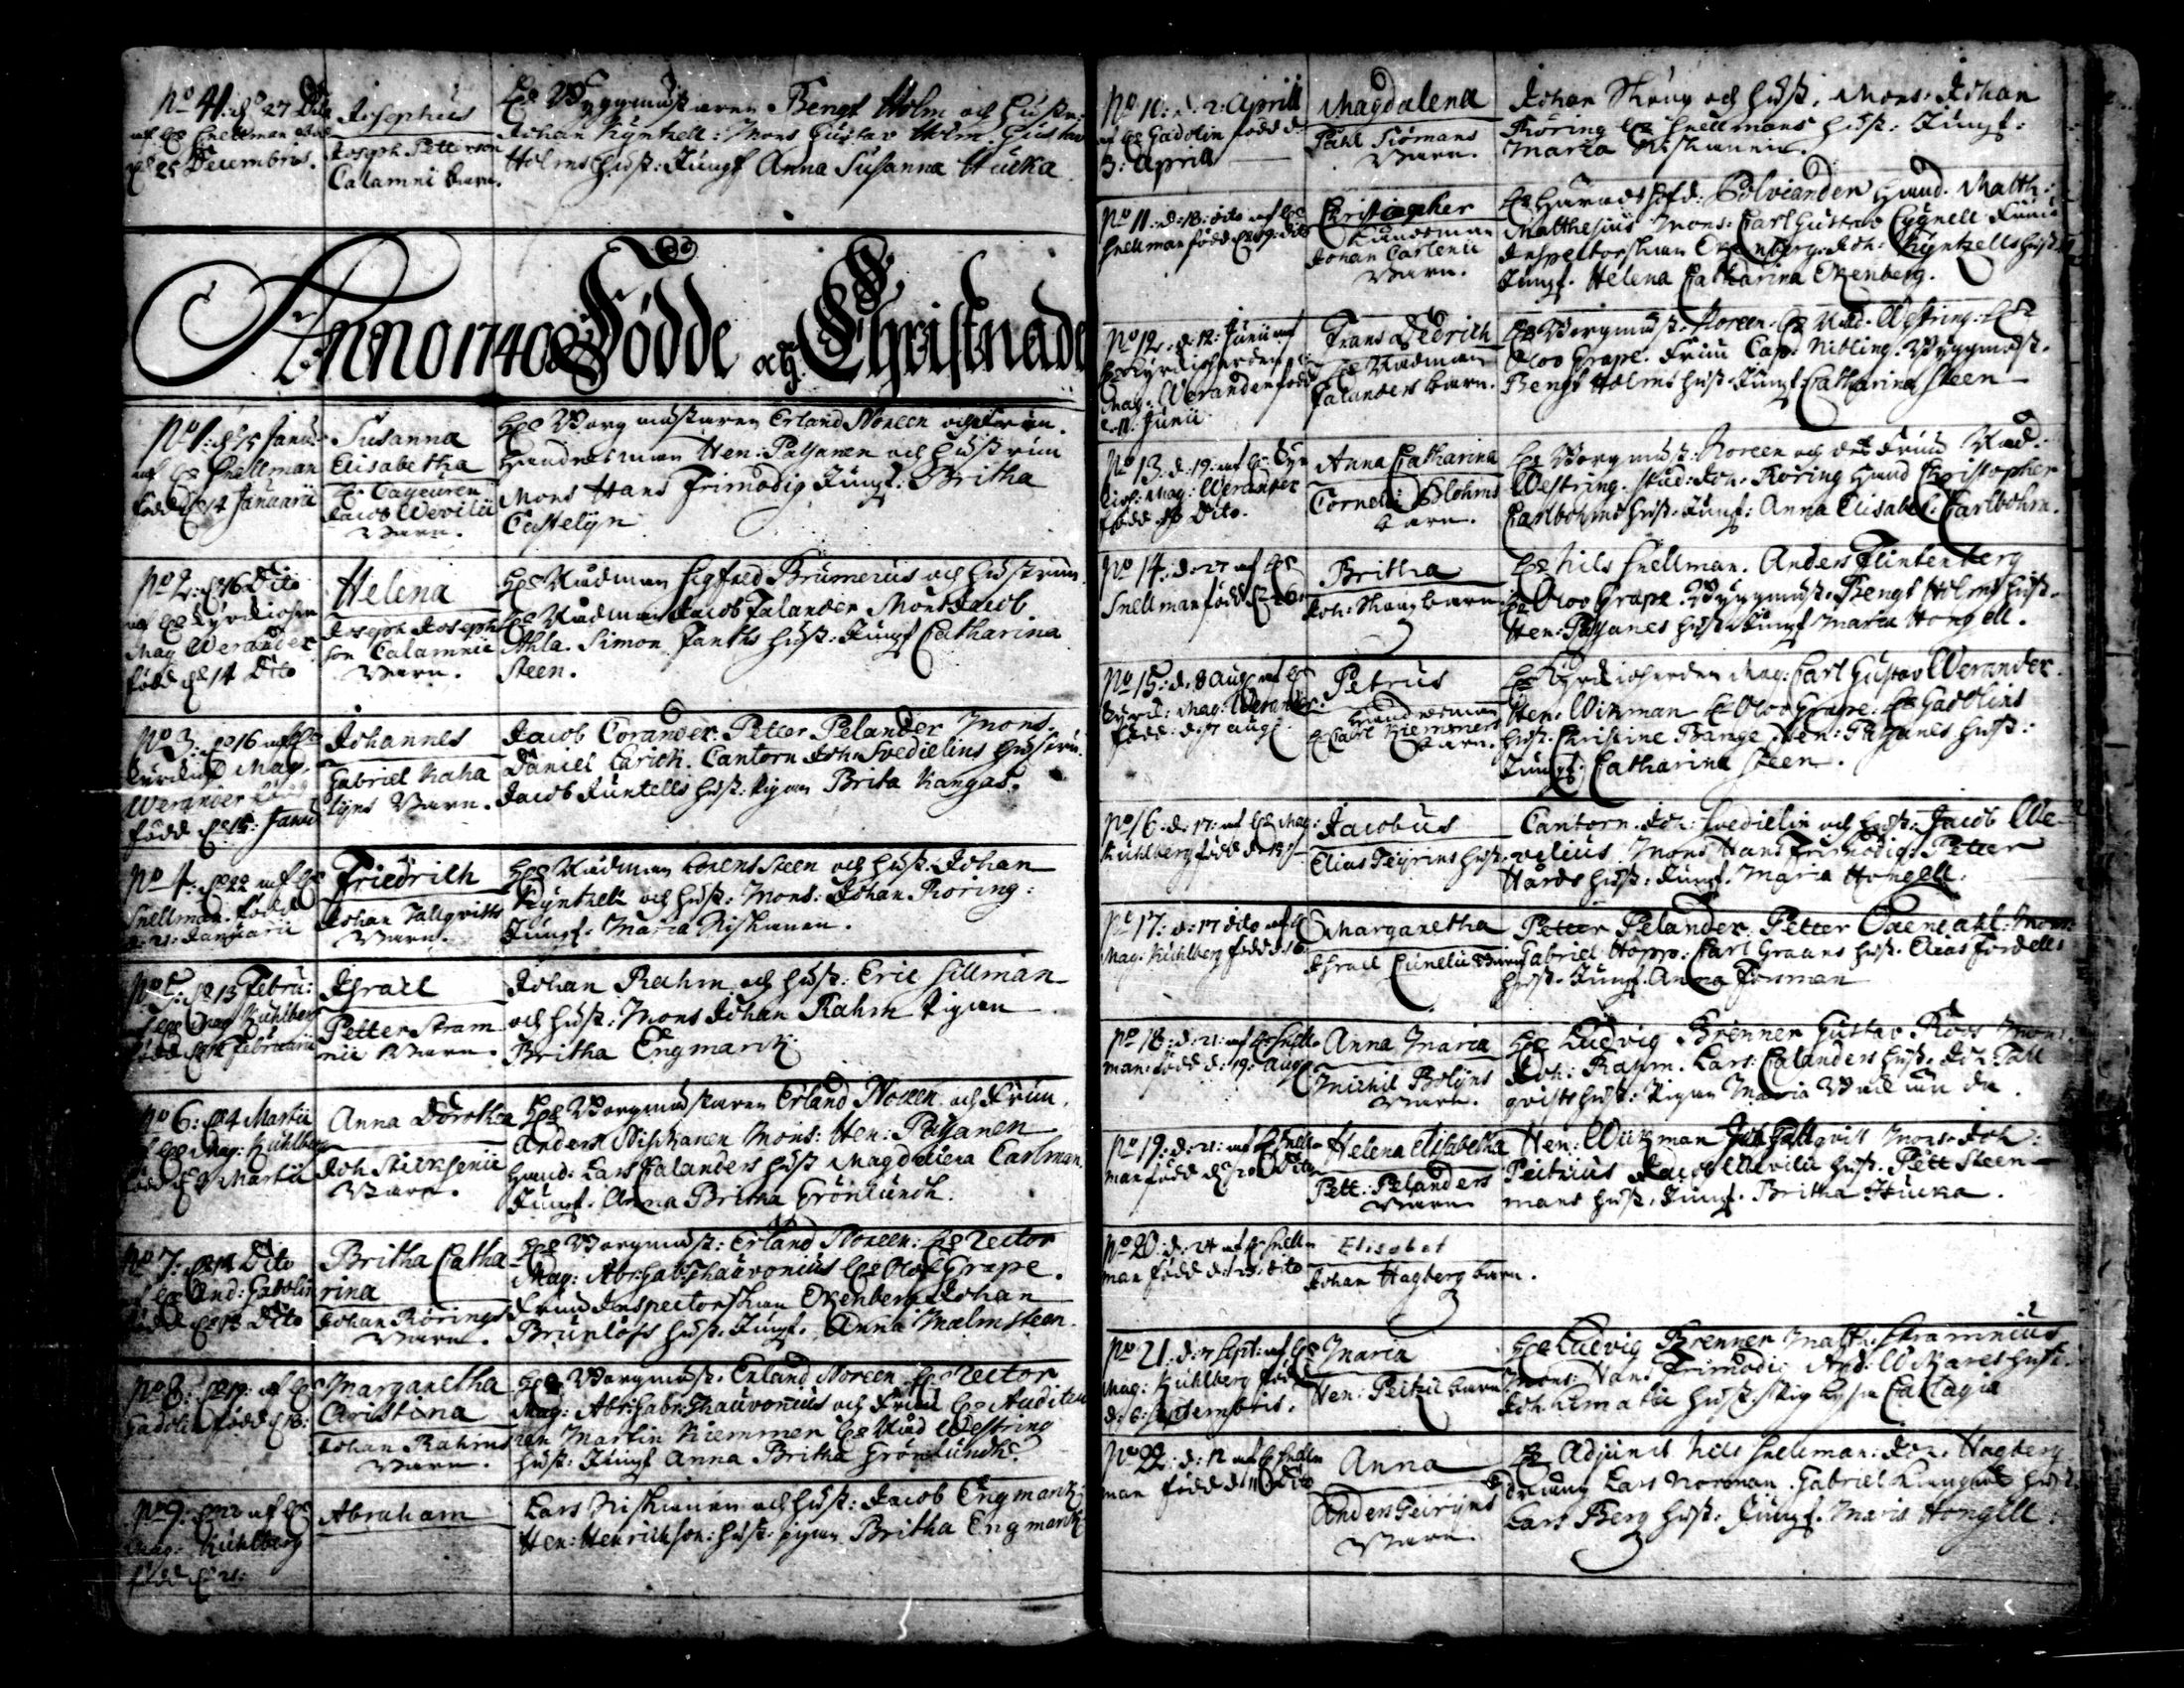 No 41: d 27 Dito
af Hr Snellman född
d 25 Decembris.
Josephus
Joseph Petterson
Calamnii barn.
Hr Byggmästaren Bengt Holm och hustru
Johan Kyntzell: Mons Gustav Holm. Gustav
Holms hust: Jungf Anna Susanna Hucka
Anno 1740 Födde och Christnade
No 1: d 15 Janu:
af Hr Snellman
född d 14 Januarii
Susanna
Elisabetha
Jacob Wevilii
Barn.
Hr Borgmästaren Erland Noreen och Frun.
Handelsman Hen: Pajanen och hustrun
Mons Hans Frimodig Jungf: Britha
Castelijn
No 2: d 16 Dito
af Hr Kyrckioherr
Mag Werander
född d 14 Dito
Helena
Joseph Joseph
son Calamnii
Barn.
Hr Rådman Sigfred Brumerus och hustrun
Hr Rådman Jacob Falander Mons Jacob
Ahla. Simon Janths hust: Jungf Catharina
Steen.
No 3: d 16 af Hr
Kyrckioh Mag.
Werander
född d 15: Janu
Johannes
Gabriel Kaha
lyns Barn.
Jacob Corander. Petter Pelander Mons.
Daniel Carich. Cantorn Joh: Svedielius hustru.
Jacob Juntells hust: Pigan Brita Kangas.
No 4: d 22 af Hr
Snellman. född
d: 21: Januarii
Friedrich
Johan Tallqvists
Barn.
Hr Rådman Lorens Steen och hust. Johan
Kyntzell och hust: Mons: Johan Roring:
Jungf. Maria Niskanen.
No 5: d 13 Febru:
af Hr Mag Kuhlberg
född d 12 Februarii
Israel
Petter Stram
nii Barn.
Johan Rahm och hust: Eric Sillman
och hust: Mons Johan Rahm Pigan
Britha Engmarck.
No 6: d 4 Martii
af Hr Mag: Kuhlberg
född d 3 Martii
Anna Dorothea
Joh Stichsenii
Barn.
Hr Borgmästaren Erland Noreen och Frun.
Anders Niskanen Mons: Hen: Pajanen
Hand: Lars Calanders hust Magdalena Carlman.
Jungf. Anna Britha Grönlundh.
No 7: d 14 Dito
af Hr And: Gadolin
född d 13 Dito
Britha Catha
rina
Johan Rörings
Barn.
Hr Borgmäst: Erland Noreen: Hr Rector
Mag: Abr: Gab: Thauvonius Hr Olof Grape.
Fru Inspectorskan Ekenberg Johan
Brunlöfs hust. Jungf. Anna Malmsteen.
No 8: d 19: af Hr
Gadolin född d 18:
Margaretha
Christina
Johan Rahms
Barn.
Hr Borgmäst. Erland Noreen Hr Rector
Mag: Abr: Gabr: Thauvonius och Frun Hr Auditeu
ren Martin Kiemmer Hr Råd Westring
hust: Jungf Anna Britha Grönlundh.
No 9: d 22 af Hr
Mag: Kuhlberg
född d 21:
Abraham
Lars Niskanen och hust: Jacob Engmarck:
Hen: Henrichson: hust: pigan Britha Engmarck
No 10: d 2: Aprill
af Hr Gadolin född d:
3: April
Magdalena
Påhl Siömans
Barn.
Johan Skoug och hust. Mons. Johan
Röring Hr Snellmans hust: Jungf:
Maria Niskanen.
No 11: d: 18: dito af Hr
Snellman född d 19: dito
Christopher
Länsman
Johan Carlenii
Barn.
Hr Häradshöfd: Polviander Hand. Matth:
Matthesius Mons: Carl Gustav Cygnell Fru
Inspectorskan Ekenberg. Joh: Kyntzells hust
Jungf. Helena Catharina Ekenberg.
No 12. d. 12: Junii af
Hr Kyrckioherden
Mag: Werander född
d. 11. Junii
Frans Fredrich
Hr Rådman
Falanders barn.
Hr Borgmäst. Noreen. Hr Råd. Westring. Hr
Oloo Grape. Fru Cap: Nibling. Byggmäst.
Bengt Holms hust. Jungf Catharina Steen
No 13. d: 19: af Hr Kyr
kioh: Mag: Werander
född d Dito.
Anna Catharina
Cornelii Blohms
barn.
Hr Borgmäst. Noreen och dess Fru Råd.
Westring. Stud: Joh. Roring Hand Christopher
Carlbohms hust. Jungf: Anna Elisabet: Carlbohm.
No 14: d: 27 af Hr
Snellman född d 26
Britha
Joh: Skoug barn.
Hr Nils Snellman. Anders Flintenberg
Hr Oloo Grape. Byggmäst. Bengt Holms hust.
Hen: Pajanes hust. Jungf Maria Hongell.
No 15: d. 8 Aug af Hr
Kyrck: Mag: Werander.
född: d. 7 aug:
Petrus
Handelsman
Carl Kiemmers
barn.
Hr Kyrckioherden Mag: Carl Gustav Werander.
Hen: Wikman Hr Oloo Grape: Hr Gadolins
hust: Christine Bange. Hen: Pajanes hust:
Jungf. Catharina Steen.
No 16: d. 17: af Hr Mag:
Kuhlberg född d
Jacobus
Elias Teijrins hust.
Cantorn. Joh: Svedielin och hust. Jacob We
velius. Mons Hans Frimodig. Petter
Hårds hust. Jungf. Maria Hongell.
No 17: d: 17 dito af Hr
Mag: Kuhlberg född d 16
Margaretha
Israel Cunelii Barn
Petter Pelander. Petter Odendahl. Mons:
Gabriel Hopp: Carl Graans hust. Claas Fordells
hust. Jungf. Anna Forsman
No 18: d: 21: af Hr Snell
man: född d: 19: aug
Anna Maria
Michil Bolijns
Barn.
Hr Ludvig Brenner Gustav Roos Mons.
Joh: Rahm. Lars: Calanders hust. Joh Tall
qvists hust: Pigan Maria
No 19: d: 21: af Hr Snell
man född d 20 Dito
Helena Elisabetha
Pett: Pelanders
Barn
Hen: Wikman Joh Tallqvist Mons. Joh:
Peitzius Jacob Wevilii hust. Pett Steen
mans hust, Jungf. Britha Hucka.
No 20: d: 24 af Hr Snell
man född d: 23: dito
Elisabet
Johan Hagberg barn.
No 21: d: 7 Sept: af Hr
Mag: Kuhlberg född
d: 6: Septembris.
Maria
Hen: Peitzii barn
Hr Ludvig Brenner Matth: Stramnius
Mons: Hans Frimodig And: Wikares hust.
Joh: Limatii hust. Pig Lisa Castagia
No 22: d: 12 af Hr Snell
man född d 11 Dito
Anna
Anders Teirijns
Barn
Hr Adjunct Nils Snellman. Joh. Hagberg
Dräng Lars Norman. Gabriel hust.
Lars Berg hust. Jungf. Maria Hongell.